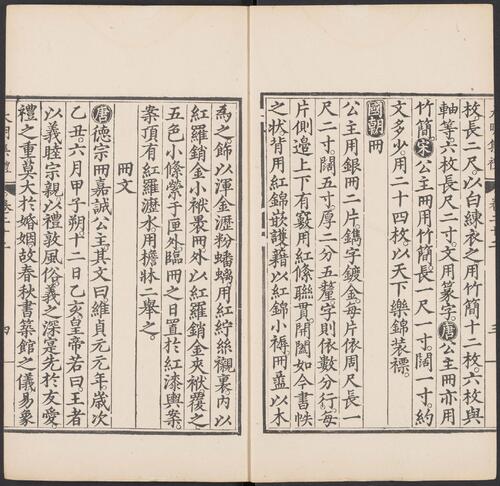 枚長二尺。以白練衣之用竹簡十二枚。六枚與
軸等。六枚長尺二寸。文用篆字。唐公主冊亦用
竹簡。宋公主冊用竹簡長一尺一寸。闊一寸。約
文多少。用二十四枚。以天下樂錦裝褾。
國朝冊
公主用銀冊二片。鐫字鍍金。每片依周尺長一
尺二寸。闊五寸。厚二分五釐。字則依數分行。每
片側邊上下有竅。用紅絛聯貫。開闔如今書帙
之狀。背用紅錦嵌護。藉以紅錦小褥。冊盝以木
為之。飾以渾金瀝粉蟠螭。用紅紵絲襯裏。內以
紅羅銷金小袱裹冊。外以紅羅銷金夾袱覆之。
五色小絛縈于匣外。臨冊之日置於紅漆輿案。
案頂有紅羅瀝水。用檐牀二舉之。
冊文
唐德宗冊嘉誠公主。其文曰。維貞元元年歲次
乙丑。六月甲子朔十二日乙亥。皇帝若曰。王者
以義睦宗親。以禮敦風俗。義之深寔先於友愛
禮之重莫大於婚姻。故春秋書築館之儀。易象
四